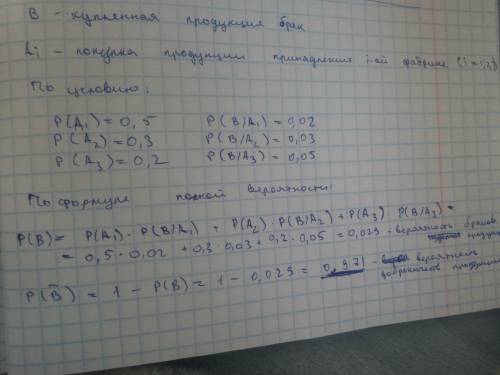 B - купленная продукция брак
Ai - покупка продукции принадлежит i-ой фабрике (i = 1,2,3)
По условию:
P(A₁) = 0,5 P(B/A₁) = 0,02
P(A₂) = 0,3 P(B/A₂) = 0,03
P(A₃) = 0,2 P(B/A₃) = 0,05
По формуле полной вероятности:
P(B) = P(A₁) · P(B/A₁) + P(A₂) · P(B/A₂) + P(A₃) · P(B/A₃) =
= 0,5 · 0,02 + 0,3 · 0,03 + 0,2 · 0,05 = 0,029 - вероятность
P(B̄) = 1 - P(B) = 1 - 0,029 = 0,971 - вероятность